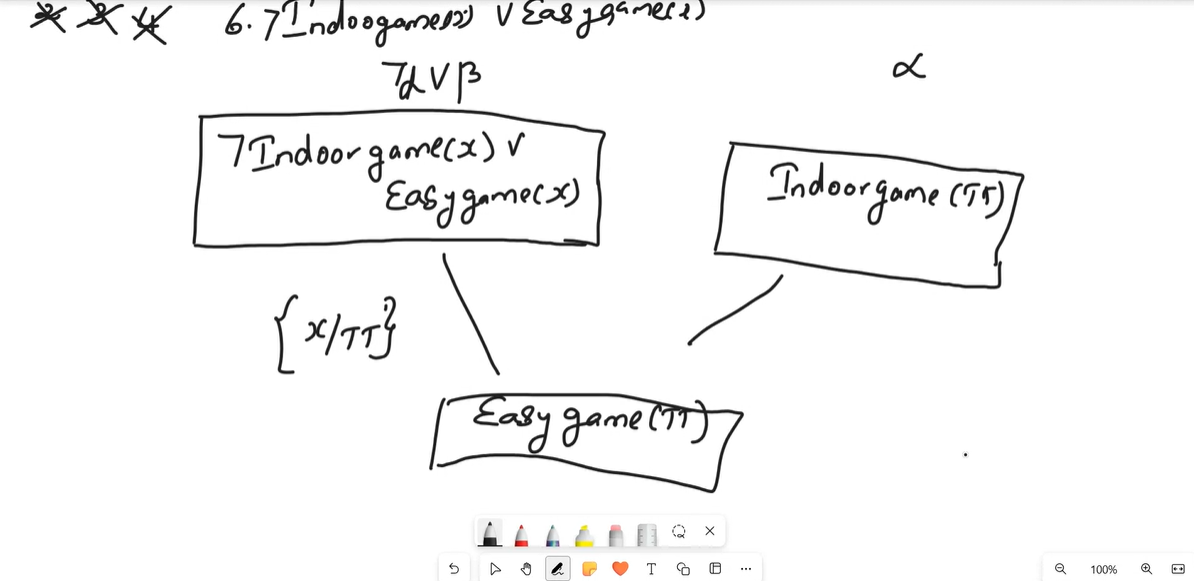 6. ㄱIndoogame(x) ∨ Easygame(x)
ㄱα∨β
α
ㄱIndoorgame(x) ∨
Easygame(x)
Indoorgame(TT)
{x/TT}
Easygame(TT)
T
100%